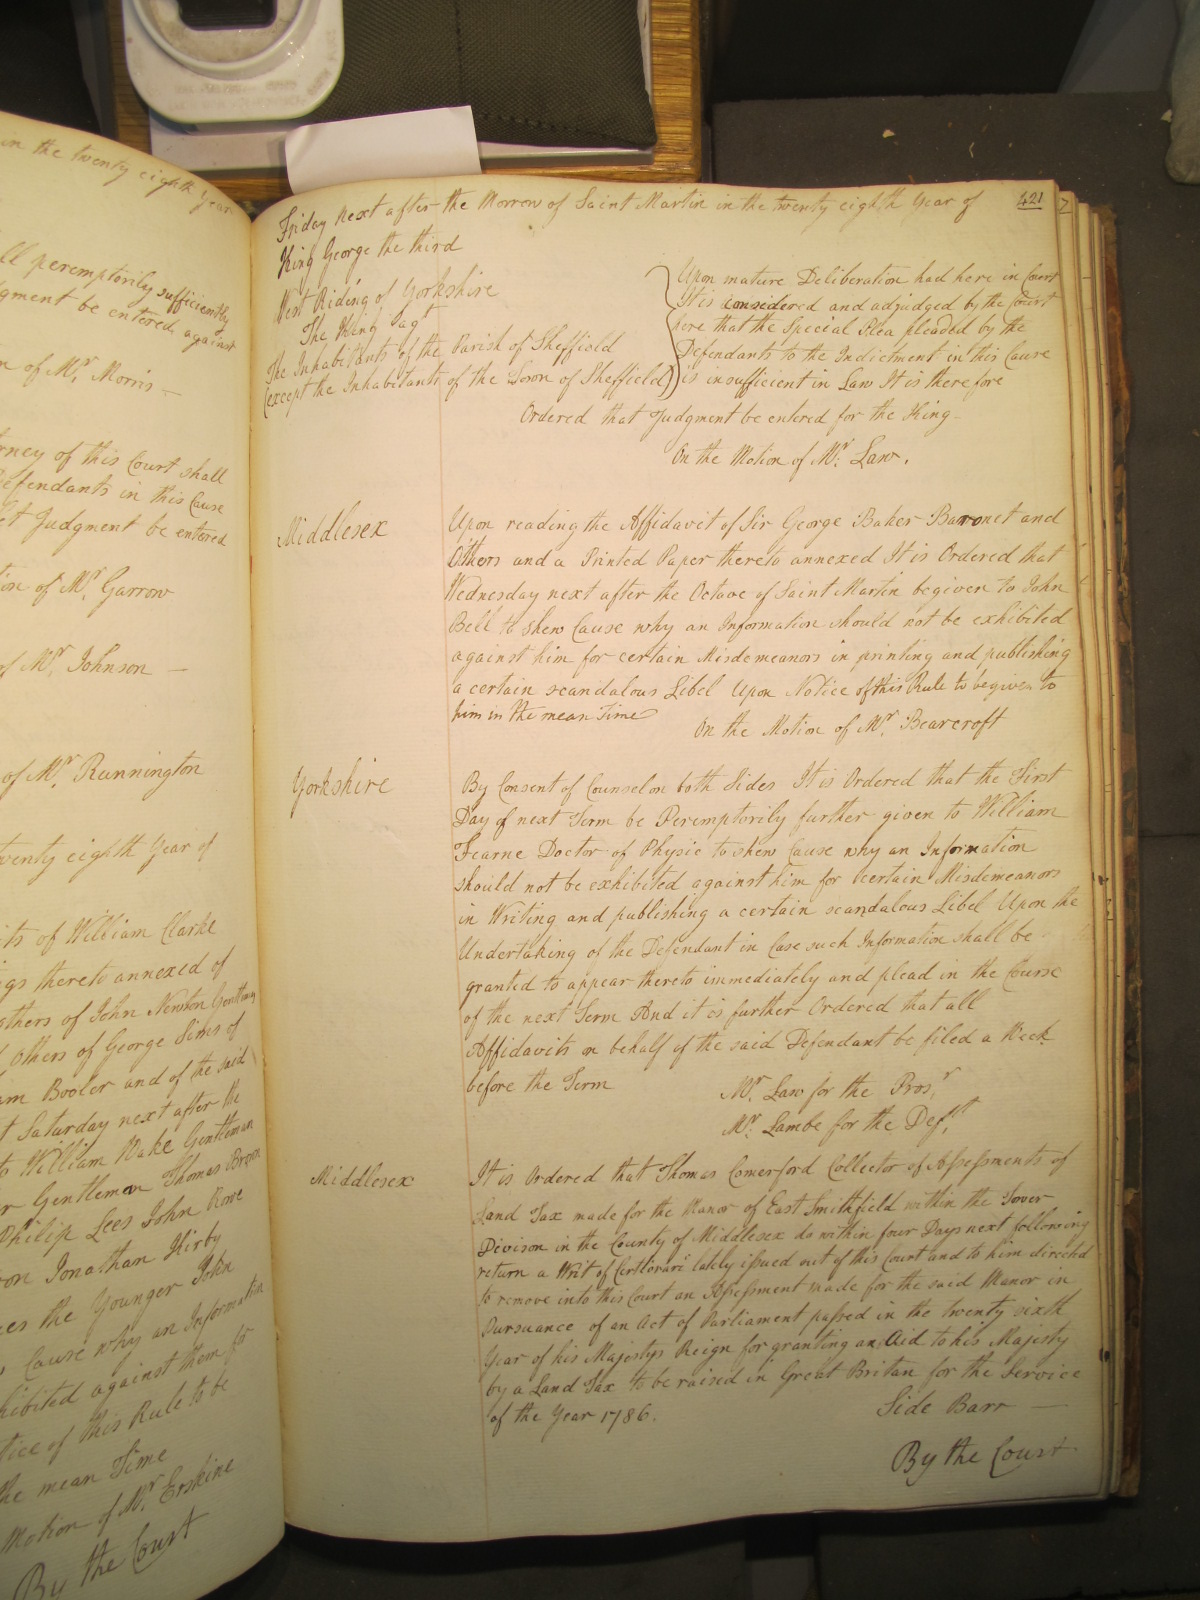 in the twenty eighth Year
ll peremptorily sufficiently
dgment be entered against
n of Mr. Morris
rney of this Court shall
Defendants in this Cause
et Judgment be entered
tion of Mr. Garrow
of Mr. Johnson
of Mr. Runnington
twenty eighth Year of
its of William Clarke
gs thereto annexed of
others of John Newton Gentleman
others of George Sims of
am Booler and of the said
t Saturday next after the
to William Wake Gentleman
r Gentleman Thomas Brown
Philip Lees John Rowe
on Jonathan Kirby
ees the Younger John
Cause why an Information
hibited against them for
tice of this Rule to be
the mean Time
Motion of Mr. Erskine
By the Court
Friday next after the Morrow of Saint Martin in the twenty eighth Year of 421
King George the third
West Riding of Yorkshire
The King agt
The Inhabitants of the Parish of Sheffield
(except the Inhabitants of the Town of Sheffield)
Upon mature Deliberation had here in Court
It is considered and adjudged by the Court
here that the Special Plea pleaded by the
Defendants to the Indictment in this Cause
is insufficient in Law It is therefore
Ordered that Judgment be entered for the King
On the Motion of Mr. Law.
Middlesex
Upon reading the Affidavit of Sir George Baker Baronet and
Others and a Printed Paper thereto annexed It is Ordered that
Wednesday next after the Octave of Saint Martin be given to John
Bell to shew Cause why an Information should not be exhibited
against him for certain Misdemeanors in printing and publishing
a certain scandalous Libel Upon Notice of this Rule to be given to
him in the mean Time
On the Motion of Mr. Bearcroft
Yorkshire
By Consent of Counsel on both Sides It is Ordered that the First
Day of next Term be Peremptorily further given to William
Fearne Doctor of Physic to shew Cause why an Information
should not be exhibited against him for certain Misdemeanors
in Writing and publishing a certain scandalous Libel Upon the
Undertaking of the Defendant in Case such Information shall be
granted to appear thereto immediately and plead in the Course
of the next Term And it is further Ordered that all
Affidavits on behalf of the said Defendant be filed a Week
before the Term
Mr. Law for the Prosr.
Mr. Lambe for the Deft.
Middlesex
It is Ordered that Thomas Comerford Collector of Assessments of
Land Tax made for the Manor of East Smithfield within the Tower
Divison in the County of Middlesex do within four Days next following
return a Writ of Certiorari lately issued out of this Court and to him directed
to remove into this Court an Assessment made for the said Manor in
Pursuance of an Act of Parliament passed in the twenty sixth
Year of his Majestys Reign for granting an Aid to his Majesty
by a Land Tax to be raised in Great Britan for the Service
of the Year 1786.
Side Barr
By the Court